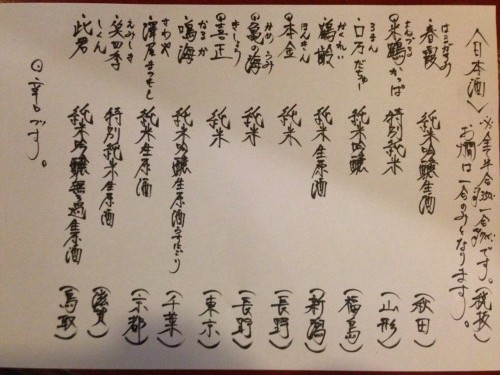 〈日本酒〉
※全て半合 一合 です。（税抜）
お燗は一合のみとなります。
はるがすみ
・春霞 純米吟醸生酒 （秋田）
よねつる
・米鶴かっぱ 特別純米 （山形）
ろまん
・ロ万だぢゅー 純米吟醸 （福島）
かくれい
・鶴齢 純米生原酒 （新潟）
ほんきん
・本金 純米 （長野）
かめ うみ
・亀の海 純米 （長野）
きしょう
喜正 純米 （東京）
なるか
・鳴海 純米吟醸生原酒うすにごり （千葉）
さわや
・澤屋まつもと 純米生原酒 （京都）
えみしき
・笑四季 特別純米生原酒 （滋賀）
しくん
・此君 純米吟醸無ろ過生原酒 （鳥取）
辛口です。